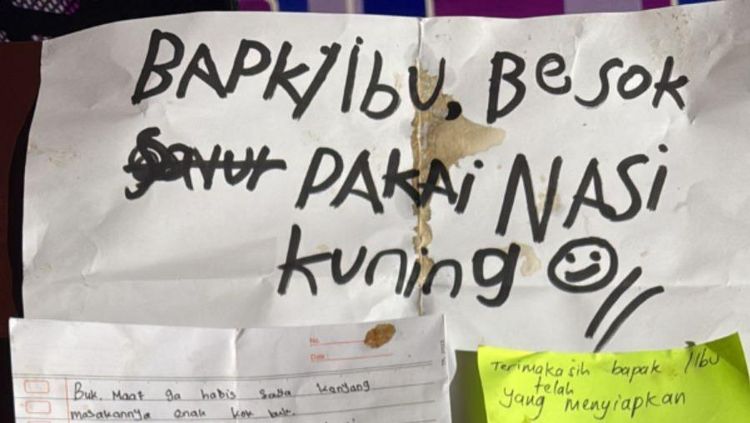 BAPK/ibu, Besok
Sayur PAKAi NASi
kuning
No
Date:
Buk. Maaf ga habis Saya Kenyang
masakannya enak kok buk.
Terimakasih bapak /Ibu
telah
yang menyiapkan